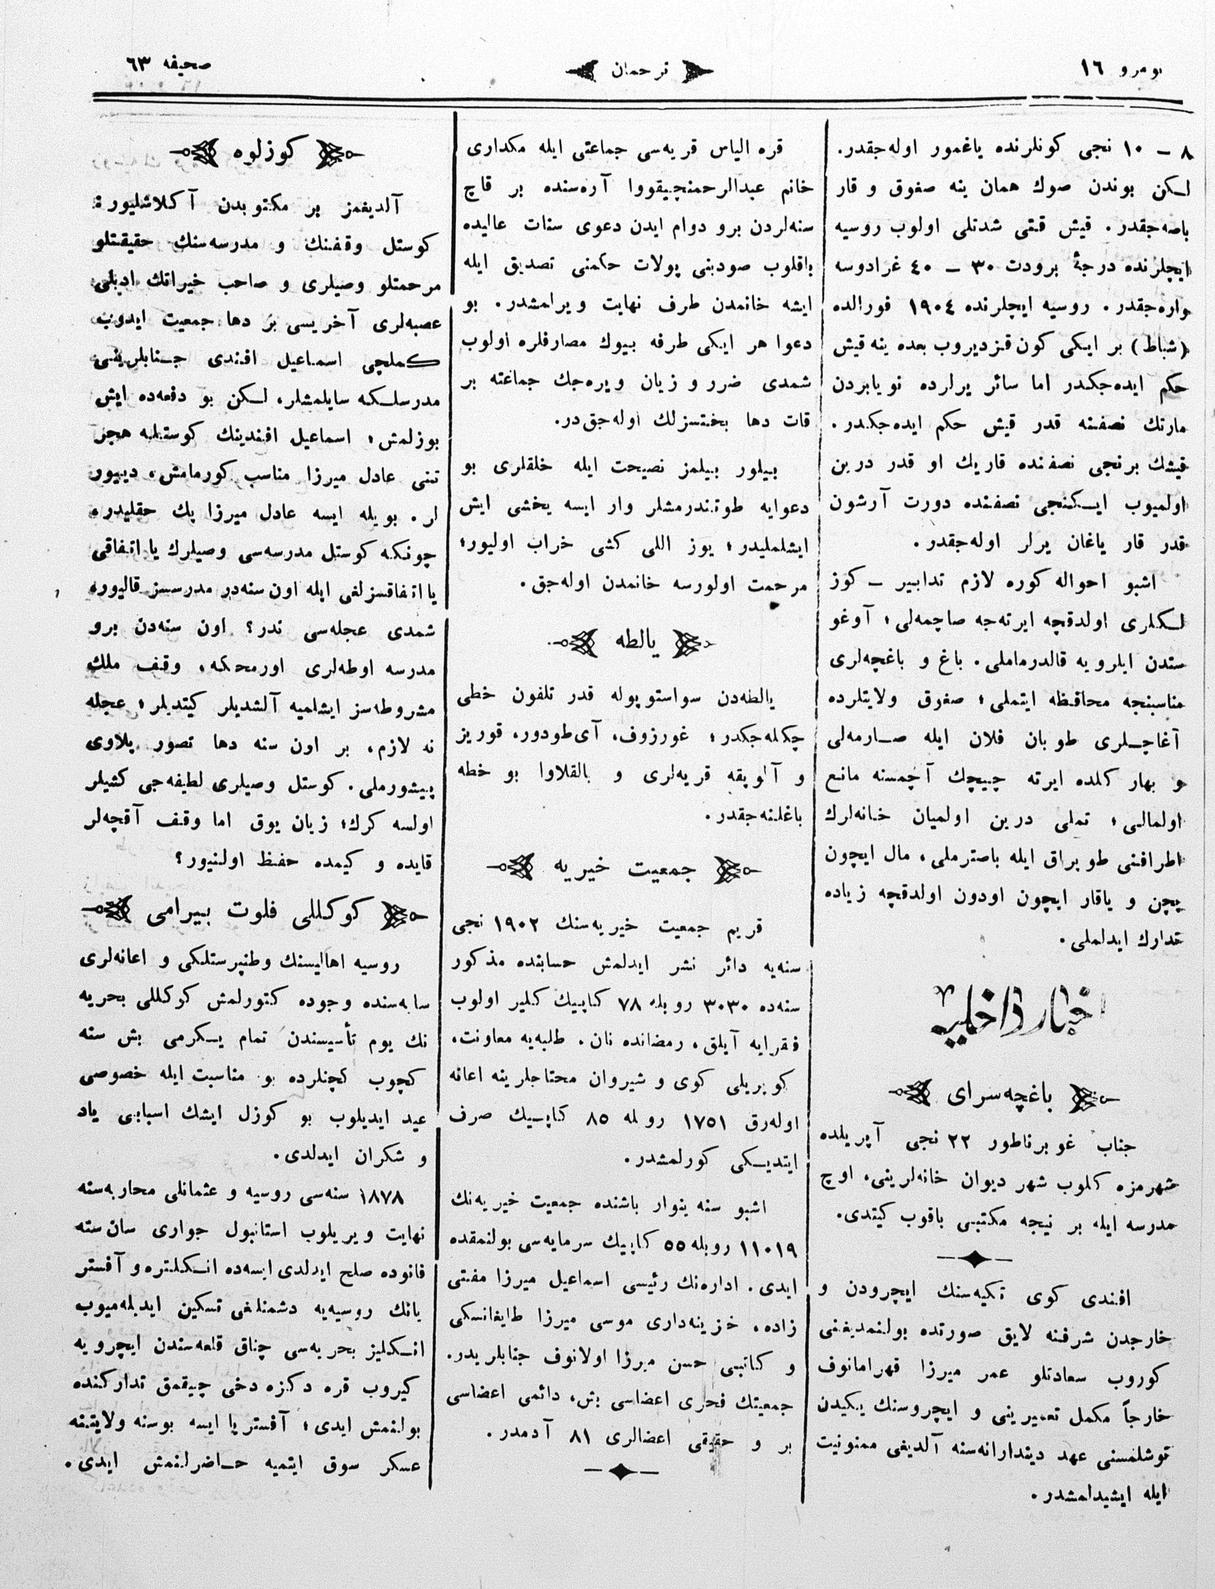 نومرو ١٦
ترجمان
صحيفه ٦٣
٨ – ١٠ نجى كونلرنده ياغمور اوله‌جقدر.
لكن بوندن صوك همان ينه صغوق و قار
باصه‌جقدر. قيش قتى شدتلى اولوب روسيه
ايچلرنده درجۀ برودت ٣٠ – ٤٠ غرادوسه
واره‌جقدر. روسيه ايچلرنده ١٩٠٤ فورالده
(شباط) بر ايكى كون قزديروب بعده ينه قيش
حكم ايده‌جكدر اما سائر يرلرده نويابردن
مارتك نصفنه قدر قيش حكم ايده‌جكدر.
قيشك برنجى نصفنده قاريك او قدر درين
اولميوب ايكنجى نصفنده دورت آرشون
قدر قار ياغان يرلر اوله‌جقدر.
اشبو احواله كوره لازم تدابير – كوز
لكلرى اولدقچه ايرته‌جه صاچمه‌لى؛ آوغو
ستدن ايلرويه قالدرماملى. باغ و باغچه‌لرى
مناسبنجه محافظه ايتملى؛ صغوق ولايتلرده
آغاچلرى طوبان فلان ايله صارمه‌لى
و بهار كلمده ايرته چيچك آچمسنه مانع
اولمالى؛ تملى درين اولميان خانه‌لرك
اطرافنى طوپراق ايله باصترملى، مال ايچون
پچن و ياقار ايچون اودون اولدقچه زياده
تدارك ايدلملى.
اخبار داخليه
باغچه‌سراى
جناب غوبرناطور ٢٢ نجى آپريلده
شهرمزه كلوب شهر ديوان خانه‌لرينى، اوچ
مدرسه ايله بر نيجه مكتبى باقوب كيتدى.
افندى كوى تكيه‌سنك ايچرودن و
خارجدن شرفنه لايق صورتده بولنمديغنى
كوروب سعادتلو عمر ميرزا قهرامانوف
خارجاً مكمل تعميرينى و ايچروسنك يكيدن
توشلمسنى عهد ديندارانه‌سنه آلديغى ممنونيت
ايله ايشيدلمشدر.
قره الياس قريه‌سى جماعتى ايله مكدارى
خانم عبدالرحمنچيقووا آره‌سنده بر قاچ
سنه‌لردن برو دوام ايدن دعوى سنات عاليده
باقلوب صودبنى پولات حكمنى تصديق ايله
ايشه خانمدن طرف نهايت ويرلمشدر. بو
دعوا هر ايكى طرفه بيوك مصارفلره اولوب
شمدى ضرر و زيان ويره‌جك جماعته بر
قات دها بختسزلك اوله‌جق‌در.
بيلور بيلمز نصيحت ايله خلقلرى بو
دعوايه طوتندرمشلر وار ايسه يخشى ايش
ايشلمليدر؛ يوز اللى كشى خراب اوليور؛
مرحمت اولورسه خانمدن اوله‌جق.
يالطه
يالطه‌دن سواستوپوله قدر تلفون خطى
چكله‌جكدر؛ غورزوف، آى‌طودور، قوريز
و آلوپقه قريه‌لرى و بالقلاوا بو خطه
باغلنه‌جقدر.
جمعيت خيريه
قريم جمعيت خيريه‌سنك ١٩٠٢ نجى
سنه‌يه دائر نشر ايدلمش حسابنده مذكور
سنه‌ده ٣٠٣٠ روبله ٧٨ كاپيك كلير اولوب
فقرايه آيلق، رمضانده نان. طلبه‌يه معاونت،
كوپريلى كوى و شيروان محتاجلرينه اعانه
اوله‌رق ١٧٥١ روبله ٨٥ كاپيك صرف
ايتديكى كورلمشدر.
اشبو سنه ينوار باشنده جمعيت خيريه‌نك
١١٠١٩ روبله ٥٥ كاپيك سرمايه‌سى بولنمقده
ايدى. اداره‌نك رئيسى اسماعيل ميرزا مفتى
زاده، خزينه‌دارى موسى ميرزا طايغانسكى
و كاتبى حسن ميرزا اولانوف جنابلريدر.
جمعيتك فخرى اعضاسى بش، دائمى اعضاسى
بر و حقيقى اعضالرى ٨١ آدمدر.
كوزلوه
آلديغمز بر مكتوبدن آكلاشليور:
كوستل وقفنك و مدرسه‌سنك حقيقتلو
مرحمتلو وصيلرى و صاحب خيراتك ادبلى
عصبه‌لرى آخريسى بر دها جمعيت ايدوب
كملجى اسماعيل افندى جنابلرينى
مدرسلكه سايلمشلر، لكن بو دفعه‌ده ايش
بوزلمش؛ اسماعيل افندينك كوستله هجر
تنى عادل ميرزا مناسب كورمامش، ديپور
لر. بويله ايسه عادل ميرزا پك حقليدره
چونكه كوستل مدرسه‌سى وصيلرك يا اتفاقى
يا اتفاقسزلغى ايله اون سنه‌در مدرسسز قاليوره
شمدى عجله‌سى ندر؟ اون سنه‌دن برو
مدرسه اوطه‌لرى اورمحكه، وقف ملك
مشروطه‌سز ايشلميه آلشديلر كيتديلر؛ عجله
نه لازم، بر اون سنه دها تصور پلاوى
پيشورملى. كوستل وصيلرى لطيفه‌جى كشيلر
اولسه كرك؛ زيان يوق اما وقف آقچه‌لر
قايده و كيمده حفظ اولنيور؟
كوكللى فلوت بيرامى
روسيه اهاليسنك وطنپرستلكى و اعانه‌لرى
سايه‌سنده وجوده كتورلمش كوكللى بحريه
نك يوم تأسيسندن تمام يكرمى بش سنه
كچوب كچنلرده بو مناسبت ايله خصوصى
عيد ايديلوب بو كوزل ايشك اسبابى ياد
و شكران ايدلدى.
١٨٧٨ سنه‌سى روسيه و عثمانلى محاربه‌سنه
نهايت ويريلوب استانبول جوارى سان سته
فانوده صلح ايدلدى ايسه‌ده انكلتره و آفستر
يانك روسيه‌يه دشمنلغى تسكين ايدبله‌ميوب
انكليز بحريه‌سى چناق قلعه‌سندن ايچرويه
كيروب قره دكزه دخى چيقمق تداركنده
بولنمش ايدى؛ آفستريا ايسه بوسنه ولايتنه
عسكر سوق ايتميه حاضرلنمش ايدى.